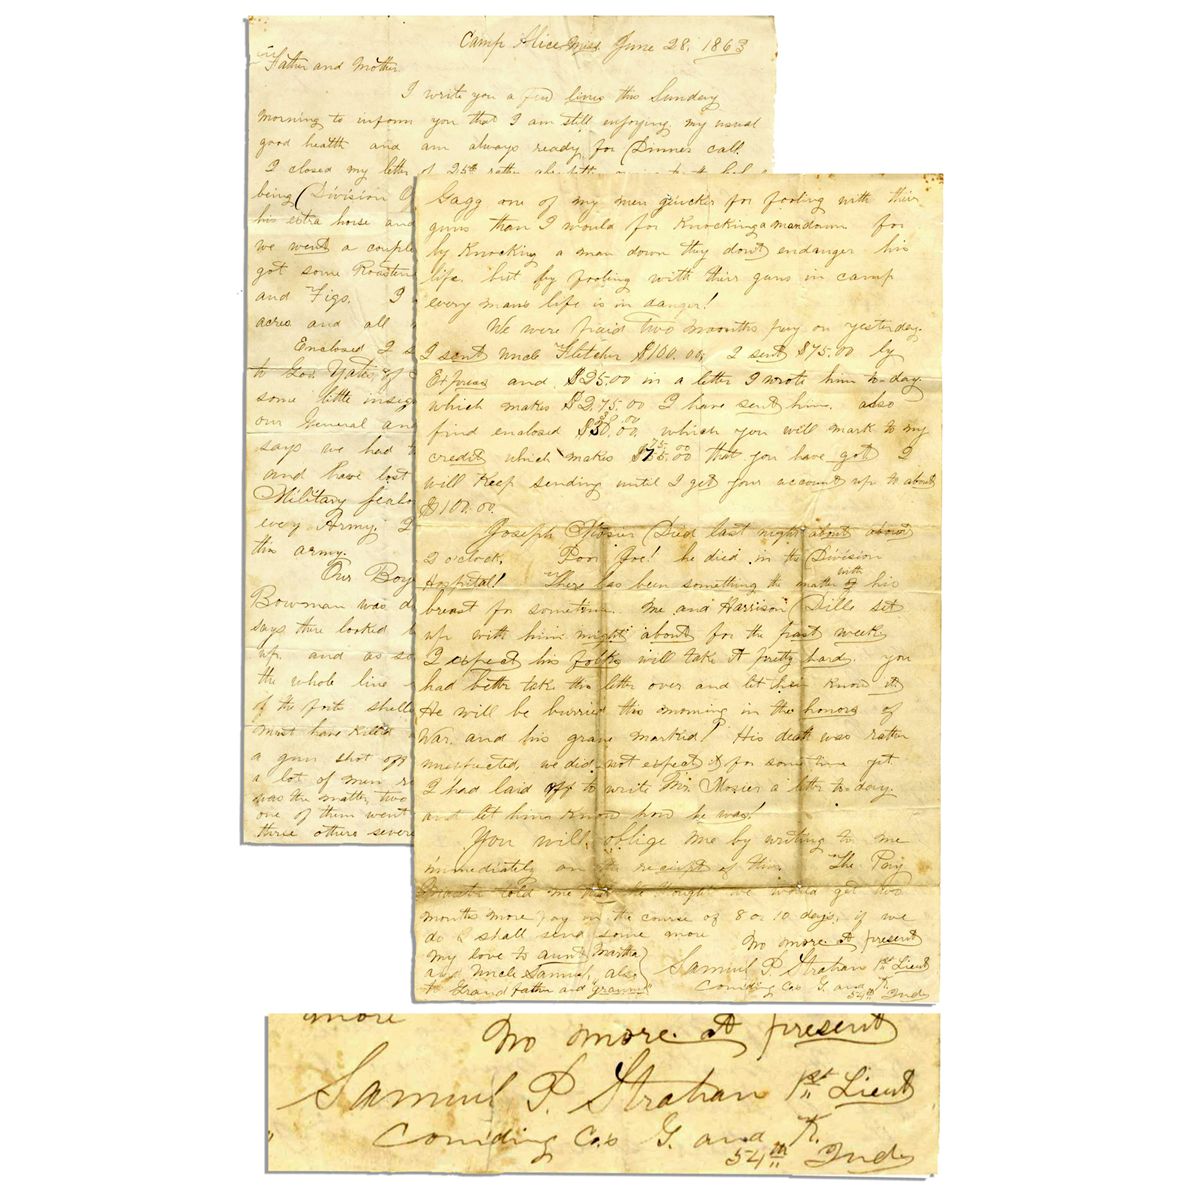 Camp Alice Miss June 28, 1863
Father and Mother
I write you a few lines this Sunday
morning to inform you that I am still enjoying my usual
good health and am always ready for Dinner call.
I closed my letter of 25th rather
being Division
his extra horse and
we went a couple
got some
and Figs. I
acres and all
Enclosed I
to Gov. Yates of
some little
our General and
says we had
and have lost
Military
every Army,
this army.
Our Boys
Bowman was
says there looked
up. and as
the whole line
of the forts
must have killed
a gun shot
a lot of men
was the matter, two
one of them went
three others
Gagg one of my men quicker for fooling with their
guns than I would for Knocking a man down for
by Knocking a man down they dont endanger his
life. but by fooling with their guns in camp
every man's life is in danger!
We were paid two months pay on yesterday.
I sent uncle Fletcher $100.00, I sent $75.00 by
Express and $25.00 in a letter I wrote him to-day.
which makes $275.00 I have sent him. also
find enclosed which you will mark to my
credit which makes that you have got I
will Keep sending until I get your account up to about
$100.00
Joseph Mosier Died last night about about
2 o'clock. Poor Joe! he died in the Division
Hospital! There has been something the matter with his
breast for sometime. Me and Harrison Dille set
up with him night about for the past week
I expect his folks will take it pretty hard. you
had better take this letter over and let them know it.
He will be burried this morning in the honors of
War. and his grave marked! His death was rather
unexpected we did not expect it for some time yet.
I had laid off to write Mr. Mosier a letter to-day.
and let him know how he was!
You will oblige me by writing to me
immediately on the receipt of this. The Pay
Master told me that he thought we would get two
months more pay in the course of 8 or 10 days, if we
do I shall send some more
No more at present
my love to aunt Martha
and Uncle Samuel, also
to Grand father and "granma"
Samuel P. Strahan 1st Lieut
Comding Co's G. and K.
54th Ind
more
No more at present
Samuel P. Strahan 1st Lieut
Comding Co's G. and K.
54th Ind